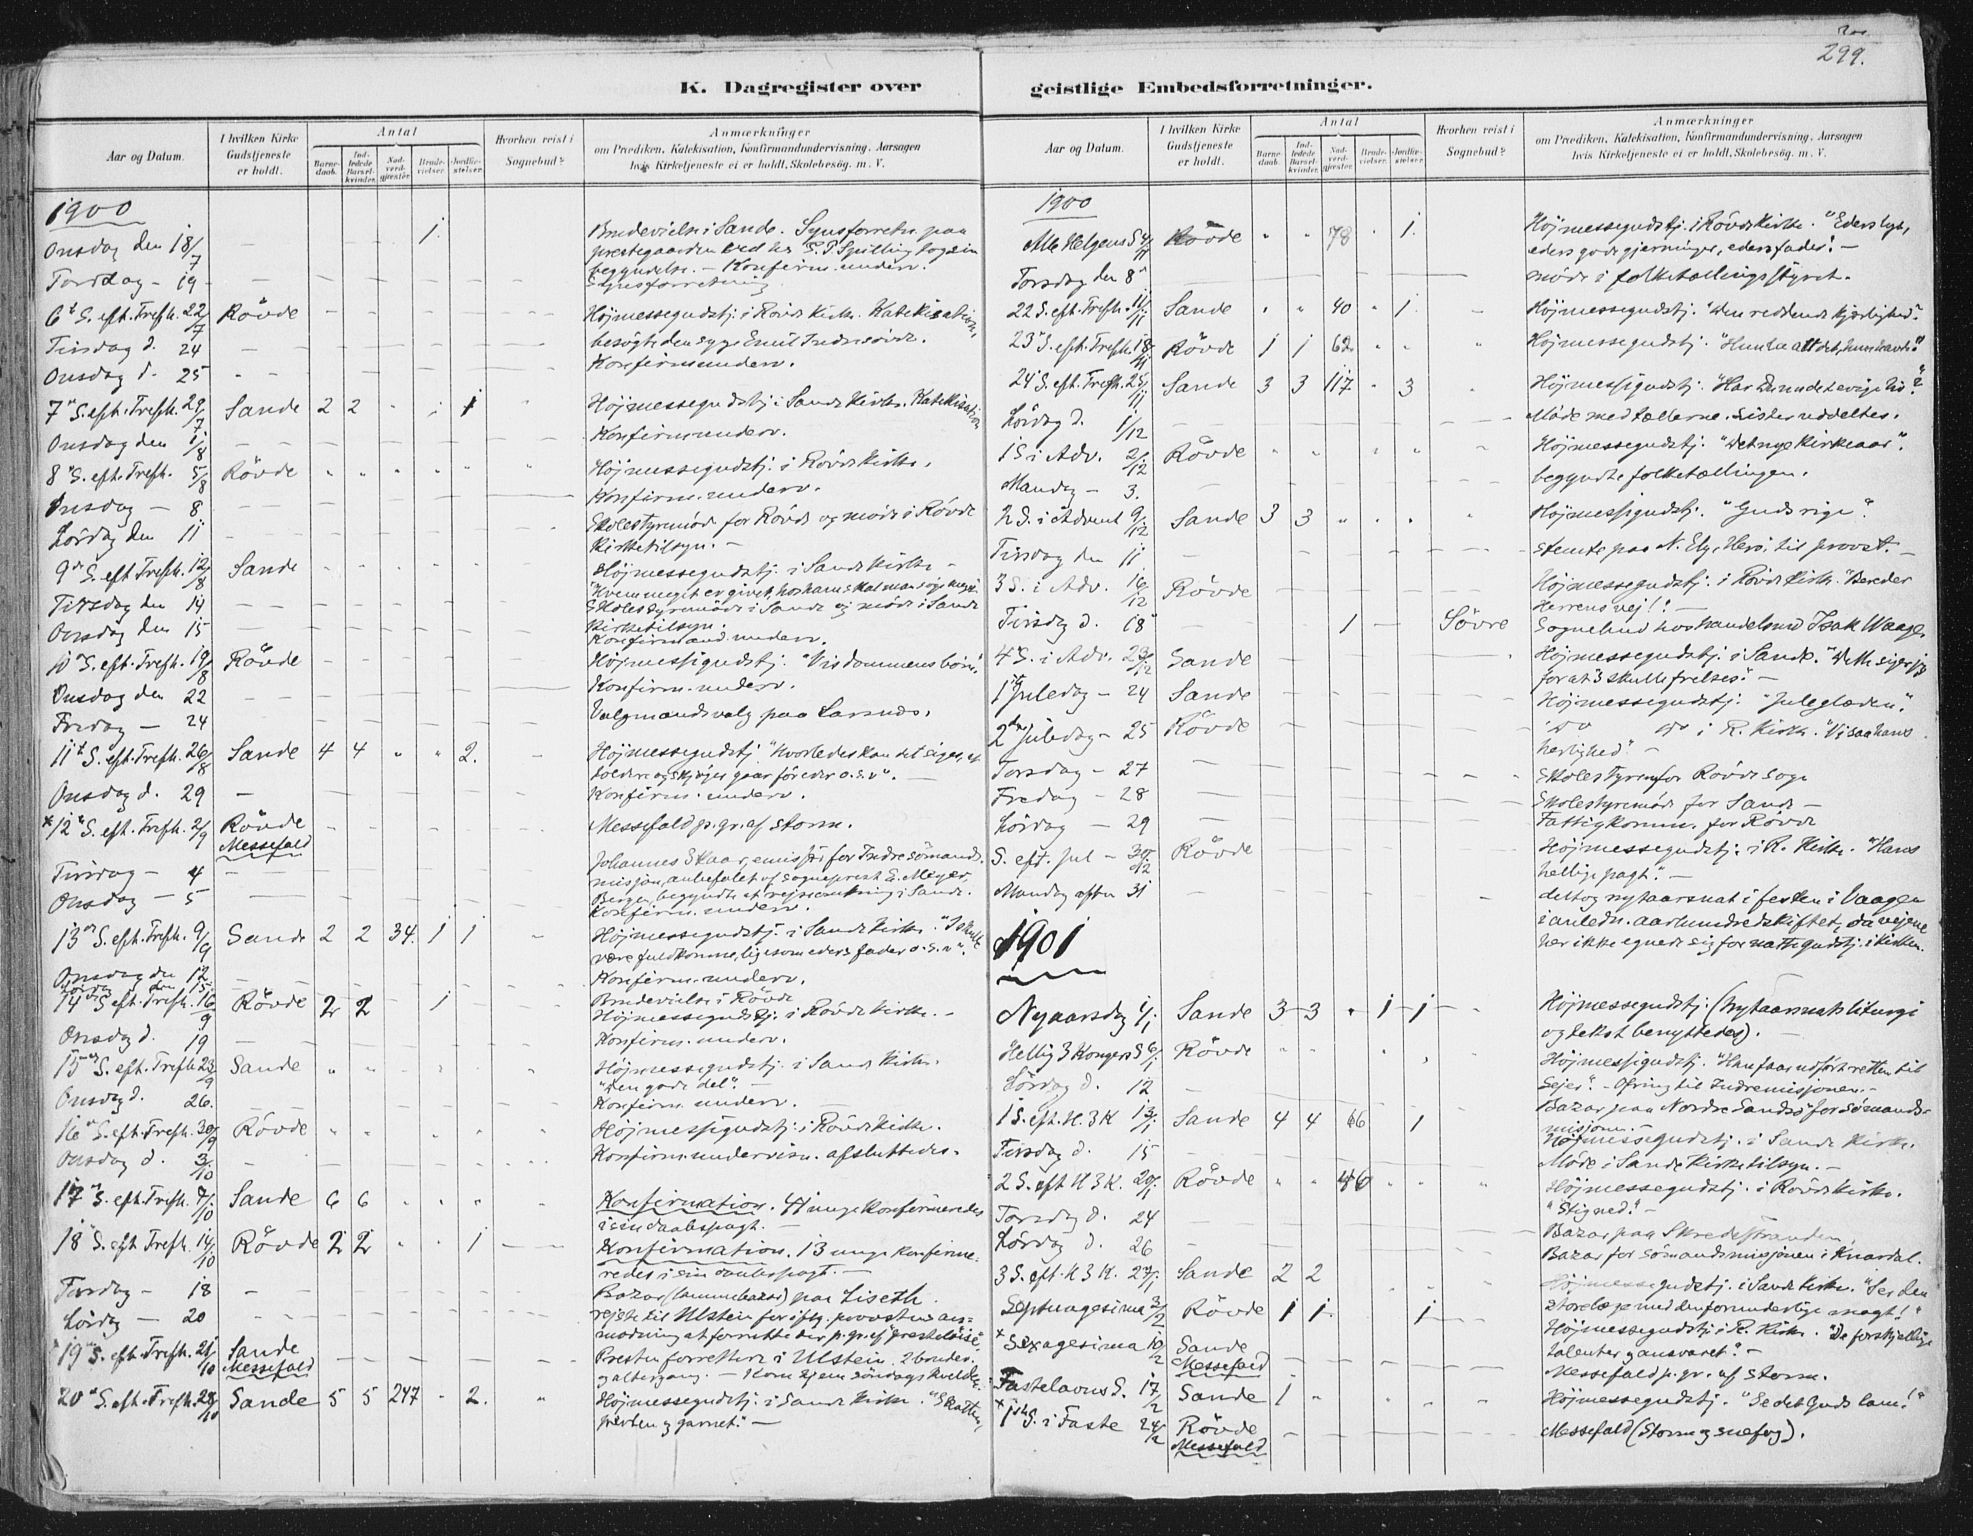 299.
K. Dagregister over geistlige Embedsforretninger.
Aar og Datum.
I hvilken Kirke Gudstjeneste er holdt.
Antal
Barne-daab.
Ind-ledede Barsel-kvinder.
Nad-verd-gjester.
Brude-vielser.
Jordfæ-stelser.
Hvorhen reist i Sognebud?
Anmærkninger
om Prædiken, Katekisation, Konfirmandundervisning, Aarsagen
hvis Kirketjeneste ei er holdt, Skolebesøg. m. V.
1900
Onsdag den 18/7 - - - - 1. Brudevielse i Sande. Synsforretn. paa
prestegaarden
begyndelse. - Konfirm. underv.
Torsdag - 19 Synsforretning
6te S. eft. Trefh. 22/7 Rövde Höjmessegudstj. i Rövde Kirke. Katekisation
Tirsdag d. 24 besögte den syge Emil
Onsdag d. 25 Konfirm. underv.
7" S. eft. Trefh. 29/7 Sande 2 2 " 1 Höjmessegudstj. i Sande Kirke. Katekisation
Onsdag den 1/8 Konfirm. underv.
8" S. eft. Trefh. 5/8 Rövde Höjmessegudstj. i Rövde Kirke.
Onsdag - 8 Konfirm. underv.
Lördag den 11 Skolestyremöde for Rövde og möde i Rövde
Kirketilsyn. -
9de S. eft Trefh. 12/8 Sande Höjmessegudstj. i Sande Kirke -
"Hvem meget er givet, hos ham skal man söge meget"
Tirsdag den 14 Skolestyremöde i Sande og möde i Sande
Kirketilsyn.
Onsdag den 15 Konfirmand. underv.
10" S. eft. Trefh. 19/8 Rövde Höjmessegudstj. "Visdommens börn".
Onsdag den 22 Konfirm. underv.
Fredag - 24 Valgmandsvalg paa Larsnes.
11te S. eft. Trefh. 26/8 Sande 4 4 " " 2. - Höjmessegudstj. "hvorledes kan det siges, at
toldere og skjöger gaar för eder o. s. v". -
Onsdag d. 29 - Konfirm. underv.
*12" S. eft. Trefh. 2/9 Rövde Messefald Messefald p. gr. af storm.
Tirsdag - 4 Johannes Skaar, emissær for Indre sömands-
misjon, anbefalet af sogneprest E. Meyer,
Bergen, begyndte sit i Sande.
Onsdag - 5 Konfirm. underv.
13de S. eft. Trefh. 9/9 Sande 2 2 34. 1 1 - Höjmessegudstj. i Sande Kirke. "I skulle
være fuldkomne, ligesom eders fader o. s. v."
Onsdag den 12 Konfirm. underv.
Lördag den 15. Brudevielse i Rövde
14de S. eft. Trefh. 16/9 Rövde 2 2 - 1 Höjmessegudstj. i Rövde Kirke. -
Onsdag d. 19 Konfirm. underv.
15de S. eft. Trefh. 23/9 Sande Höjmessegudstj. i Sande Kirke.
"Den gode del". -
Onsdag d. 26. Konfirm. underv. -
16" S. eft. Trefh. 30/9 Rövde Höjmessegudstj. i Rövde Kirke.
Onsdag d. 3/10 Konfirm. undervisn. afsluttedes.
17" S. eft. Trefh. 7/10 Sande 6 6 Konfirmation. 41 unge konfirmeredes
i sin daabspagt. -
18" S. eft. Trefh. 14/10 Rövde 2 2 " " 1 Konfirmation. 13 unge konfirme-
redes i sin daabspagt. -
Torsdag - 18 Bazar paa Liseth.
Lördag - 20 rejste til Ulstein for iflg. provstens an-
modning at forrette der p. gr. af presteløshed.
19de S. eft. Trefh. 21/10 Sande Messefald Presten forrettede i Ulstein. 2 brudev.
og altergang. - Kom hjem söndags kvelden.
20" S. eft. Trefh. 28/10 Sande 5 5 247 " 2. " Höjmessegudstj. i Sande Kirke. "Skatten,
perlen og garnet." -
Aar og Datum.
I hvilken Kirke Gudstjeneste er holdt.
Antal
Barne-daab.
Ind-ledede Barsel-kvinder.
Nad-verd-gjester.
Brude-vielser.
Jordfæ-stelser.
Hvorhen reist i Sognebud?
Anmærkninger
om Prædiken, Katekisation, Konfirmandundervisning, Aarsagen
hvis Kirketjeneste ei er holdt, Skolebesög. m. V.
1900
Alle Helgens S 4/11 Rövde " " 78 " 1. Höjmessegudstj. i Rövde Kirke. "Eders lys,
eders gode gjerninger, eders fader". -
Torsdag den 8" möde i folketællingsstyret.
22 S. eft. Trefh. 11/11 Sande " " 40 " 1. Höjmessegudstj. "Den reddende kjærlighed".
23" S. eft. Trefh. 18/11 Rövde 1 1 62 " " Höjmessegudstj. "Hun la alt det, hun havde"
24" S. eft. Trefh. 25/11 Sande 3 3 117 " 3 Höjmessegudstj. "Har du nu det evige liv?"
Lördag d. 1/12 Möde med tællerne. Lister uddeltes.
1 S i Adv. 2/12 Rövde Höjmessegudstj. "Det nye Kirkeaar".
Mandag - 3. begyndte folketællingen.
2 S. i Advent 9/12 Sande 3 3 Höjmessegudstj. "Guds rige".
Tirsdag den 11 Stemte paa N. Ely, Herö, til provst. -
3 S. i Adv. 16/12 Rövde Höjmessegudstj. i Rövde Kirke. "Bereder
Herrens vej!". -
Tirsdag d. 18" 1 - Sövre Sognebud hos handelsmd Isak Waage.
4" S. i Adv. 23/12 Sande Höjmessegudstj. i Sande. "Dette siger jeg
for at I skulle frelses". -
1ste Juledag - 24 Sande Höjmessegudstj. "Juleglæden".
2den Juledag - 25 Rövde do do i R. Kirke. "Vi saa hans
herlighed". -
Torsdag - 27 Skolestyrem for Rövde sogn
Fredag - 28 Skolestyremöde for Sande -
Lördag - 29 Fattigkomm. for Rövde
S. eft. Jul - 30/12 Rövde Höjmessegudstj. i R. Kirke. "Hans
hellige pagt." -
Mandag aften 31 deltog nytaarsnat i festen i Vaagen
i anledn. aarhundredskiftet, da vejene
her ikke egnede sig for natte gudstj. i kirken.
1901
Nyaarsdag 1/1 Sande 3 3 " 1 1 Höjmessegudstj. (Nytaarsnats liturgi
og tekst benyttedes).
Hellig 3 Kongers S 6/1 Rövde Höjmessegudstj. "Han faar udfört retten til
Sejer". - Ofring til Indremisjonen. -
Lördag d. 12 Bazar paa Nordre Sandsö for Sömands-
misjonen. -
1 S. eft. H. 3 K 13/1 Sande 4 4 66 1 Höjmessegudstj. i Sande Kirke.
Tirsdag d. 15 Möde i Sande Kirketilsyn. -
2 S. eft H 3 K. 20/1 Rövde " " 46 Höjmessegudstj. i Rövde Kirke.
"Stig ned". -
Torsdag d. 24 Bazar paa Skredestranden.
Lördag d. 26 Bazar for Sömandsmisjonen i Knardal.
3 S. eft. H 3 K. 27/1 Sande 2 2 Höjmessegudstj. i Sande Kirke. "Se, den
store læge med den forunderlige magt!"
Septuagesima 3/2 Rövde 1 1 1 Höjmessegudstj. i R. Kirke. "De forskjellige
talenter og ansvaret". -
*Sexagesima 10/2 Sande Messefald Messefald p. gr. af storm.
Fastelavns S. 17/2 Sande 1 Höjmessegudstj. "Se det Guds lam!"
*1ste S. i Faste 24/2 Rövde Messefald Messefald (Storm og snefog).